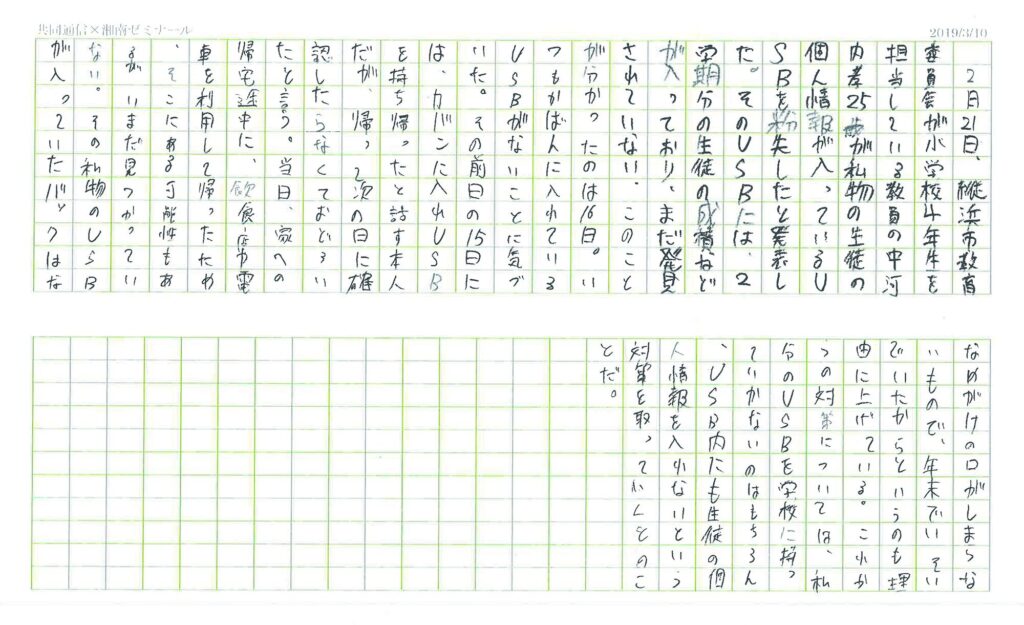 共同通信×湘南ゼミナール
2019/3/10
2月21日、横浜市教育
委員会が小学校4年生を
担当している教員の中河
内孝25歳が私物の生徒の
個人情報が入っているU
SBを紛失したと発表し
た。そのUSBには、2
学期分の生徒の成積など
が入っており、まだ発見
されていない。このこと
が分かったのは16日。い
つもかばんに入れている
USBがないことに気づ
いた。その前日の15日に
は、カバンに入れUSB
を持ち帰ったと話す本人
だが、帰って次の日に確
認したらなくておどろい
たと言う。当日、家への
帰宅途中に、飲食店や電
車を利用して帰ったため
、そこにある可能性もあ
るが、いまだ見つかってい
ない。その私物のUSB
が入っていたバックはな
なめがけの口がしまらな
いもので、年末でいそい
でいたからというのも理
由に上げている。これか
らの対策については、私
分のUSBを学校に持っ
ていかないのはもちろん
、USB内にも生徒の個
人情報を入れないという
対策を取っていくとのこ
とだ。